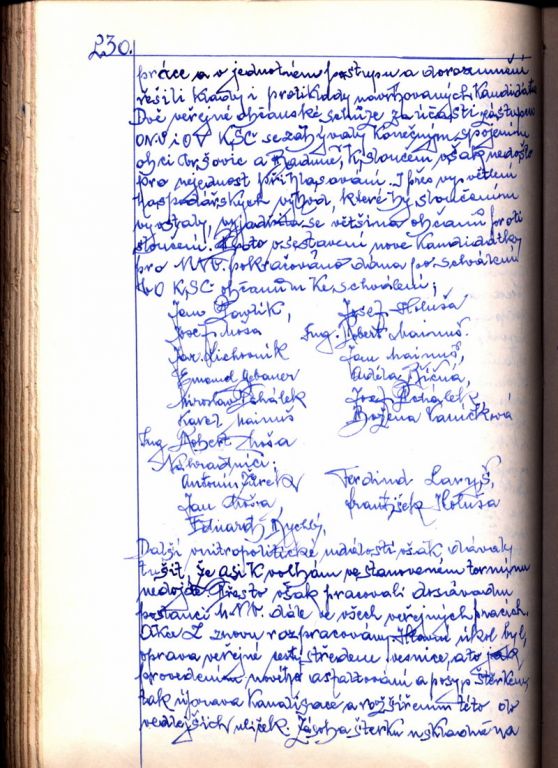 230.
práce a v jednotném postupu a dorozumění
řešili klady i protiklady navrhovaných kandidátů
Dvě veřejné občanské schůze za účasti zástupců
ONV i OV KSČ se zabývaly konečným spojením
obcí Vršovic a Hadimě, K sloučení však nedošlo
pro nejednost přihlasování. I přes vysvětlení
hospodářských výhod, které by sloučením
vyvstaly, vyjádřila se většina občanů proti
sloučení. Proto v sestavení nové kandidátky
pro MNV. pokračováno a dána po schválení
OV KSČ občanům ke schválení;
Jan Pavlík, Josef Holuša
Josef Ing. Robert
Jar. Jan
Adéla
Miroslav Pchálek Josef Pchálek
Karel Božena Vaníčková
Ing. Robert
Náhradníci:
Antonín Ferdinad
Jan František Holuša
Eduard Rychlý,
Další vnitropolitické události však dávaly
tušit, že asi k volbám ve stanoveném termínu
nedojde. Přesto však pracovali dosavadní
poslanci MNV. dále ve všech veřejných pracích.
Akce Z znovu rozpracována. Hlavní úkol byl
oprava veřejné cesty středem vesnice, a to jak
provedením nového asfaltování a posyp štěrkem,
tak úprava kanalizace a rozšířením této do
vedlejších uliček. Zásoba štěrku uskladněná na